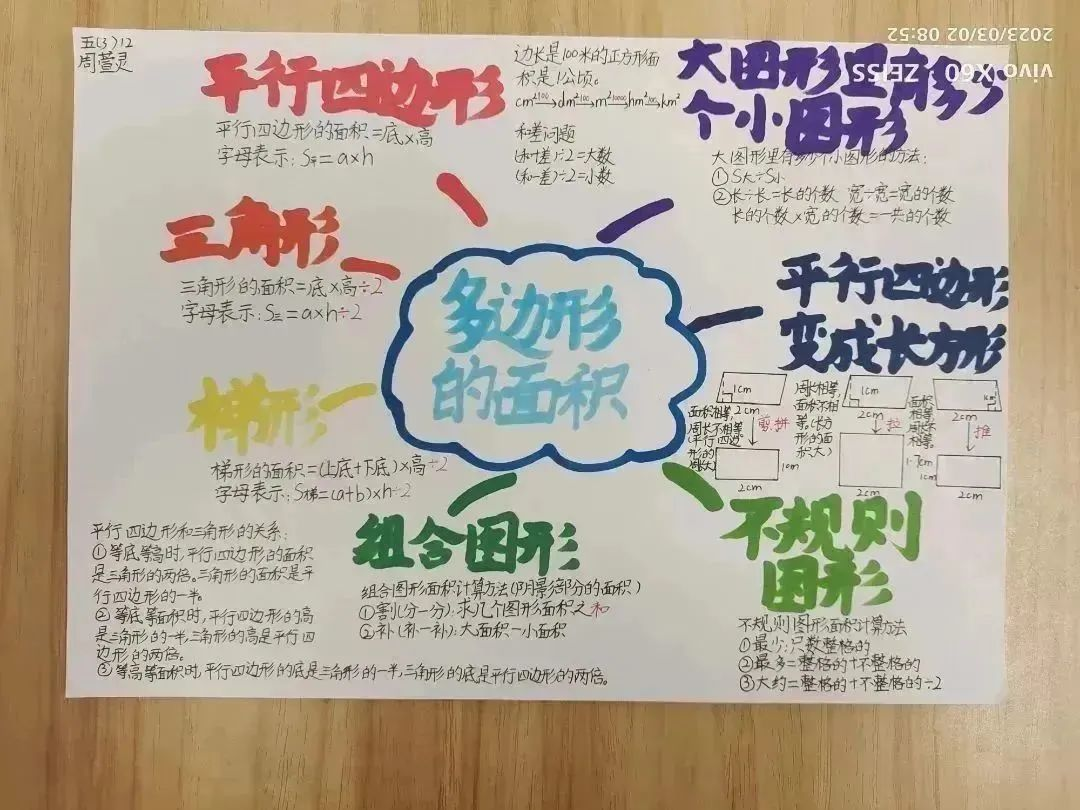 五(3)12
周萱灵
平行四边形
平行四边形的面积=底×高
字母表示:S平=a×h
边长是100米的正方形面
积是1公顷。
cm² 100→dm² 100→m² 10000→hm² 100→km²
和差问题
(和+差)÷2=大数
(和-差)÷2=小数
大图形里有多少
个小图形
大图形里有多少个小图形的方法:
①S大÷S小
②长÷长=长的个数 宽÷宽=宽的个数
长的个数×宽的个数=一共的个数
三角形
三角形的面积=底×高÷2
字母表示:S三=a×h÷2
多边形
的面积
平行四边形
变成长方形
1cm
2cm
面积相等,
周长不相等
(平行四边
形的
周长大)
剪拼
1cm
2cm
周长相等,
面积不相
等。(长方
形的面
积大)
1cm
2cm
拉
1.7cm
2cm
面积
相等,
周长不
相等。
1cm
2cm
推
1cm
2cm
梯形
梯形的面积=(上底+下底)×高÷2
字母表示:S梯=(a+b)×h÷2
平行四边形和三角形的关系:
①等底等高时,平行四边形的面积
是三角形的两倍。三角形的面积是平
行四边形的一半。
②等底等面积时,平行四边形的高
是三角形的一半,三角形的高是平行四
边形的两倍。
③等高等面积时,平行四边形的底是三角形的一半,三角形的底是平行四边形的两倍。
组合图形
组合图形面积计算方法(阴影部分的面积)
①割(分一分):求几个图形面积之和
②补(补一补):大面积-小面积
不规则
图形
不规则图形面积计算方法
①最少:只数整格的
②最多=整格的+不整格的
③大约=整格的+不整格的÷2
vivo X60 ZEISS
2023/03/02 08:52